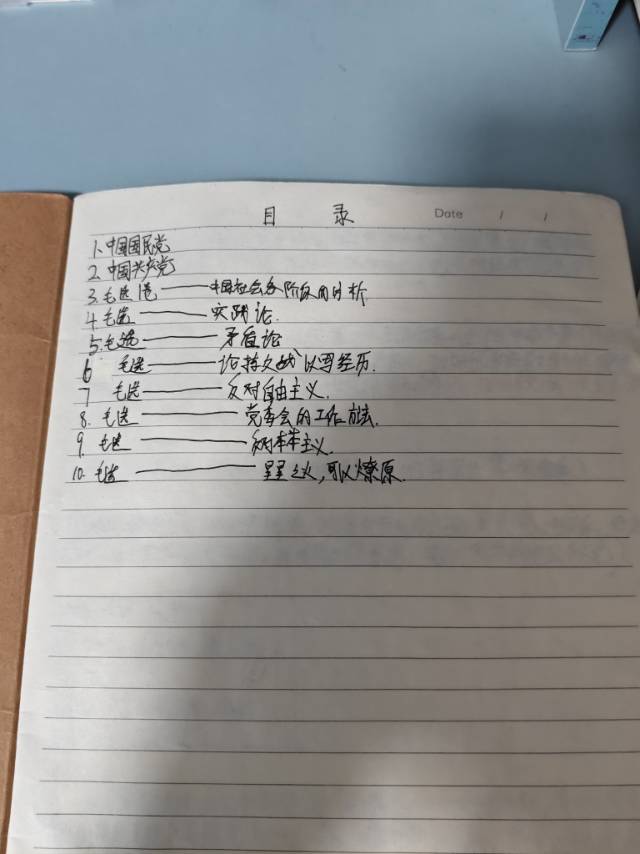 目 录 Date / /
1. 中国国民党
2. 中国共产党
3. 毛选 —— 中国社会各阶级的分析
4. 毛选 —— 实践论.
5. 毛选 —— 矛盾论
6 毛选 —— 论持久战 以写经历.
7 毛选 —— 反对自由主义.
8. 毛选 —— 党委会的工作方法.
9. 毛选 —— 本本主义.
10. 毛选 —— 星星之火,可以燎原.